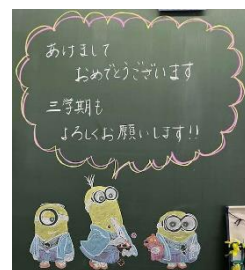 あけまして
おめでとうございます
三学期も
よろしくお願いします!!